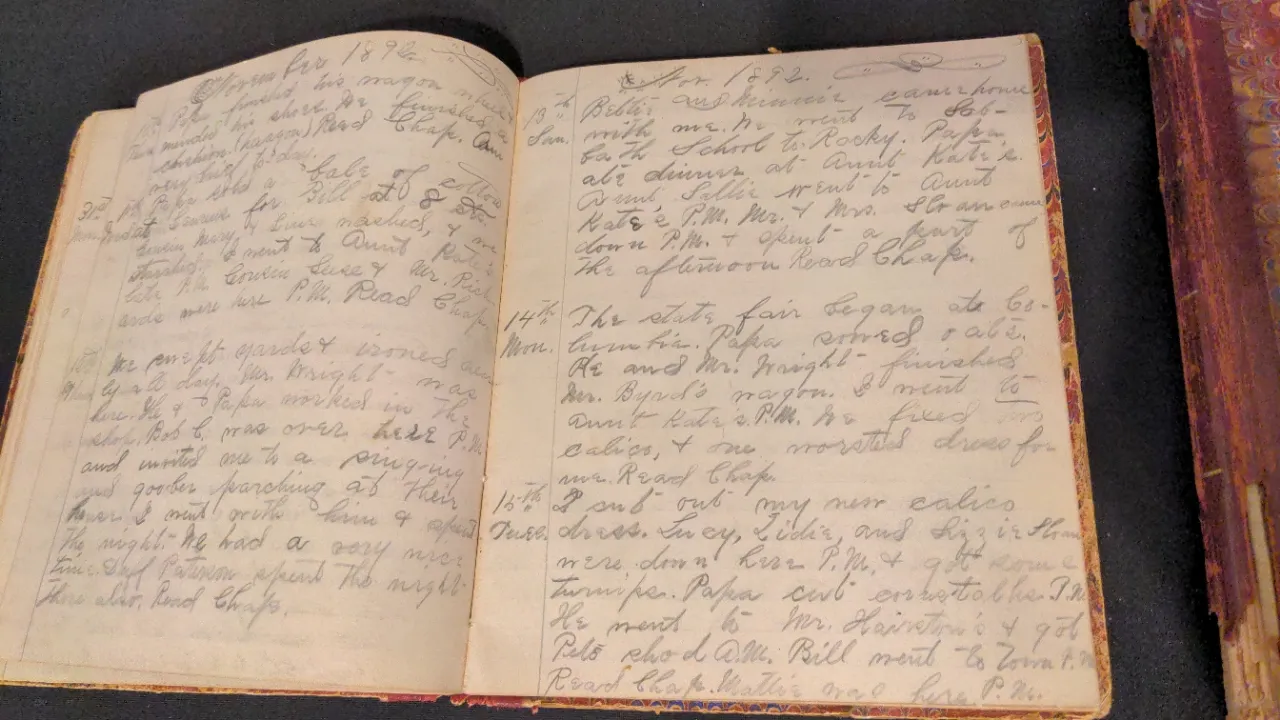 November 1892.
Papa finished his wagon
mended his shoes. He finished a
cushion (wagon) Read Chap. Cam
very bad to day.
Papa sold a bale of cotton
for Bill at 8
Mary &
I went to Aunt Kate's
late P.M. Cousin & Mr. Rich
ards were here P.M. Read Chap.
We swept yards & ironed
all day. Mr. Wright was
here. He & Papa worked in the
shop. Bob C. was over here P.M.
and invited me to a singing
and goober parching at their
house. I went with him & spent
the night. We had a very nice
time. Paterson spent the night
there also. Read Chap.
Nov. 1892.
13th Bettie and Minnie came home
Sun. with me. We went to Sab-
bath School to Rocky. Papa
ate dinner at Aunt Kate's.
Aunt Sallie went to Aunt
Kate's P.M. Mr. & Mrs. Sloan came
down P.M. & spent a part of
the afternoon Read Chap.
14th The state fair began at Co-
Mon. lumbia. Papa sowed oats.
He and Mr. Wright finished
Mr. Byrd's wagon. I went to
Aunt Kate's P.M. We fixed two
calico, & one worsted dress for
me. Read Chap.
15th I cut out my new calico
Tues. dress. Lucy, Lidie, and Lizzie Sloan
were down here P.M. & got some
turnips. Papa cut cornstalks P.M.
He went to Mr. Hairston's & got
Pets shod A.M. Bill went to Town P.M.
Read Chap. Mattie was here P.M.